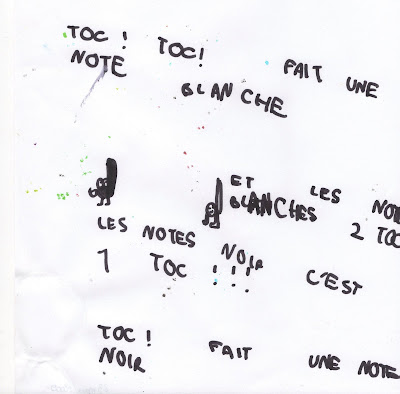 TOC ! TOC! FAIT UNE
NOTE BLANCHE
ET LES NOT
BLANCHES 2 TOC
LES NOTES NOIR
1 TOC !!! C'EST
TOC ! FAIT UNE NOTE
NOIR